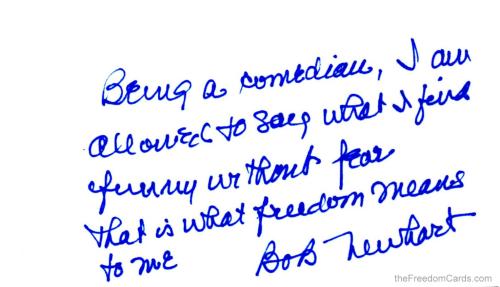 Being a comedian, I am
allowed to say what I find
funny without fear
that is what freedom means
to me Bob Newhart
theFreedomCards.com